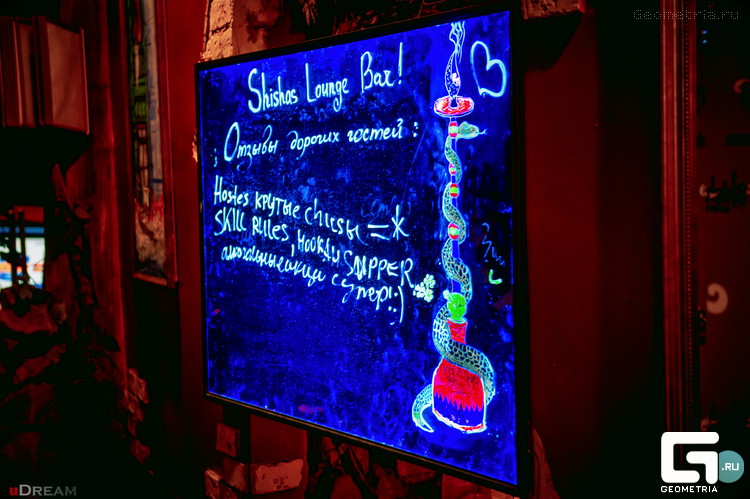 Geometria.ru
Shishas Lounge Bar!
Отзывы дорогих гостей:
Hostes крутые chicsы =Ж
SKILL RULES, HOOKAH SUPPER
супер!:)
uDREAM
G .RU
GEOMETRIA